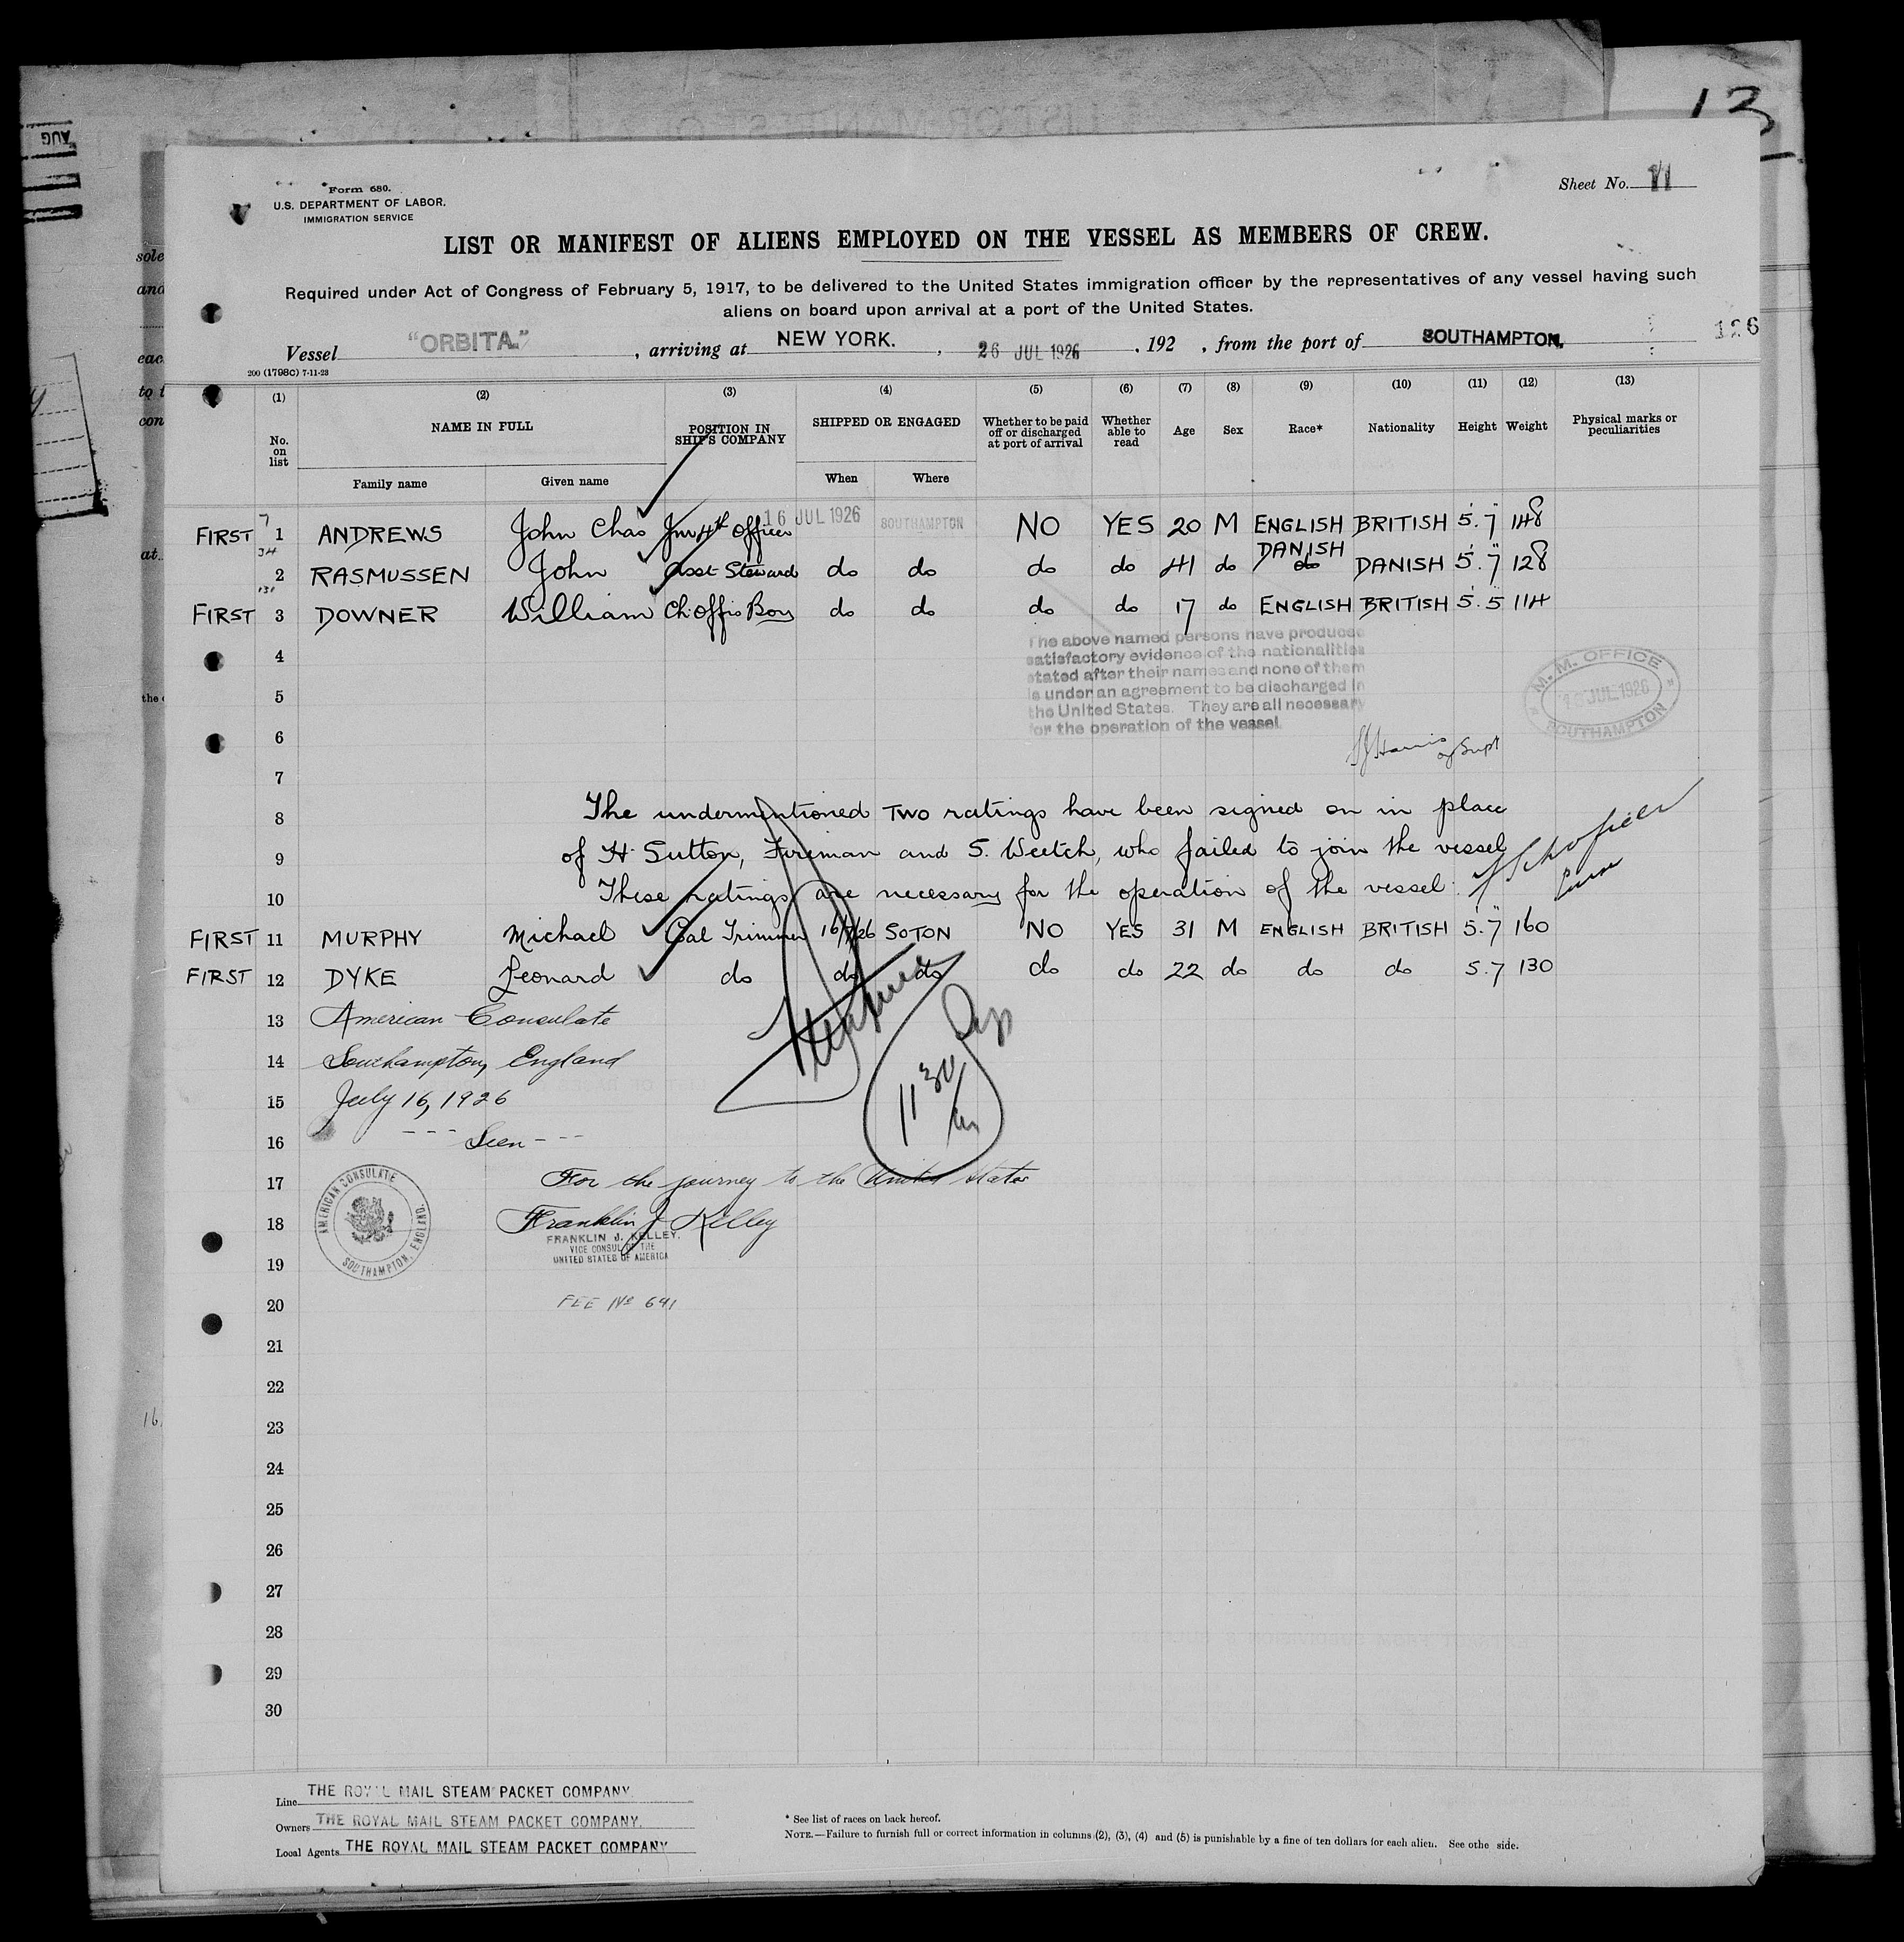 13
AUG
Form 680.
U.S. DEPARTMENT OF LABOR.
IMMIGRATION SERVICE
Sheet No. 11
LIST OR MANIFEST OF ALIENS EMPLOYED ON THE VESSEL AS MEMBERS OF CREW.
Required under Act of Congress of February 5, 1917, to be delivered to the United States immigration officer by the representatives of any vessel having such
aliens on board upon arrival at a port of the United States.
Vessel "ORBITA." , arriving at NEW YORK. , 26 JUL 1926 , 192 , from the port of SOUTHAMPTON. 126
200 (1798C) 7-11-23
(1) (2) (3) (4) (5) (6) (7) (8) (9) (10) (11) (12) (13)
No. on list NAME IN FULL POSITION IN SHIP'S COMPANY SHIPPED OR ENGAGED Whether to be paid off or discharged at port of arrival Whether able to read Age Sex Race* Nationality Height Weight Physical marks or peculiarities
Family name Given name When Where
FIRST 7 1 ANDREWS John Chas Jnr 4th Officer 16 JUL 1926 SOUTHAMPTON NO YES 20 M ENGLISH BRITISH 5.7 148
34 2 RASMUSSEN John Asst Steward do do do do 41 do DANISH do DANISH 5.7 128
131 FIRST 3 DOWNER William Ch: Offrs Boy do do do do 17 do ENGLISH BRITISH 5.5 114
4
The above named persons have produced
satisfactory evidence of the nationalities
stated after their names and none of them
is under an agreement to be discharged in
the United States. They are all necessary
for the operation of the vessel.
M. M. OFFICE
16 JUL 1926
SOUTHAMPTON
5
6
Harris
7
8 The undermentioned TWO ratings have been signed on in place
9 of H. Sutton, Fireman and S. Weetch, who failed to join the vessel
10 These ratings are necessary for the operation of the vessel.
FIRST 11 MURPHY Michael Coal Trimmer 16/7/26 SOTON NO YES 31 M ENGLISH BRITISH 5.7 160
FIRST 12 DYKE Leonard do do do do do 22 do do do 5.7 130
13 American Consulate
14 Southampton, England
15 July 16, 1926
16 --- Seen ---
1130
17 For the journey to the United States
18 Franklin J Kelley
FRANKLIN J. KELLEY.
VICE CONSUL OF THE
UNITED STATES OF AMERICA
AMERICAN CONSULATE
SOUTHAMPTON, ENGLAND.
19
20 FEE No 641
21
22
23
24
25
26
27
28
29
30
Line THE ROYAL MAIL STEAM PACKET COMPANY.
Owners THE ROYAL MAIL STEAM PACKET COMPANY.
Local Agents THE ROYAL MAIL STEAM PACKET COMPANY
* See list of races on back hereof.
NOTE.—Failure to furnish full or correct information in columns (2), (3), (4) and (5) is punishable by a fine of ten dollars for each alien. See othe side.